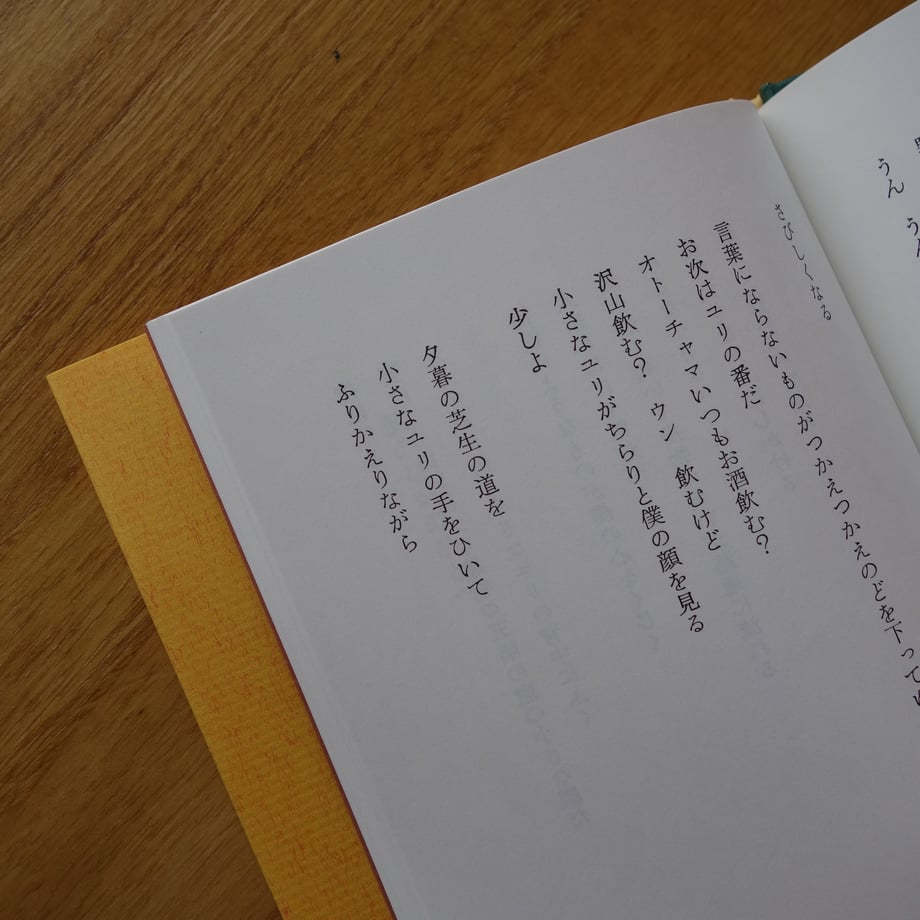 うん　うん
さびしくなる
言葉にならないものがつかえつかえのどを下って
お次はユリの番だ
オトーチャマいつもお酒飲む？
沢山飲む？　ウン　飲むけど
小さなユリがちらりと僕の顔を見る
少しよ
夕暮の芝生の道を
小さなユリの手をひいて
ふりかえりながら